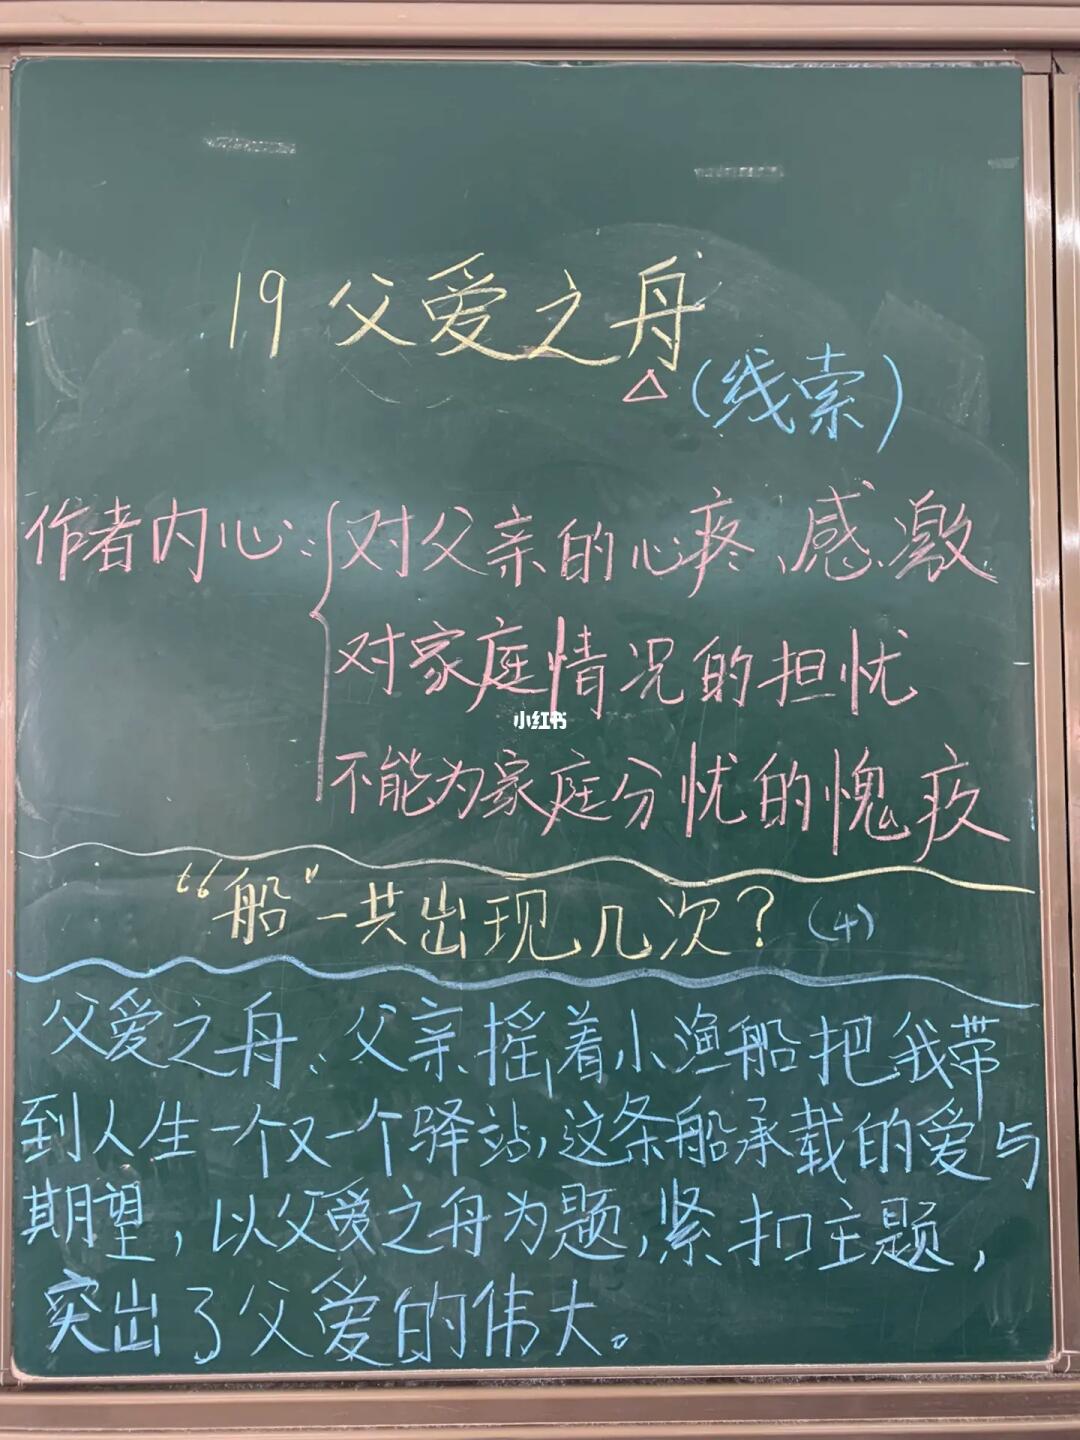 19 父爱之舟
(线索)
作者内心:
对父亲的心疼、感激
对家庭情况的担忧
小红书
不能为家庭分忧的愧疚
“船”一共出现几次?(4)
父爱之舟:父亲摇着小渔船把我带
到人生一个又一个驿站,这条船承载的爱与
期望,以父爱之舟为题,紧扣主题,
突出了父爱的伟大。